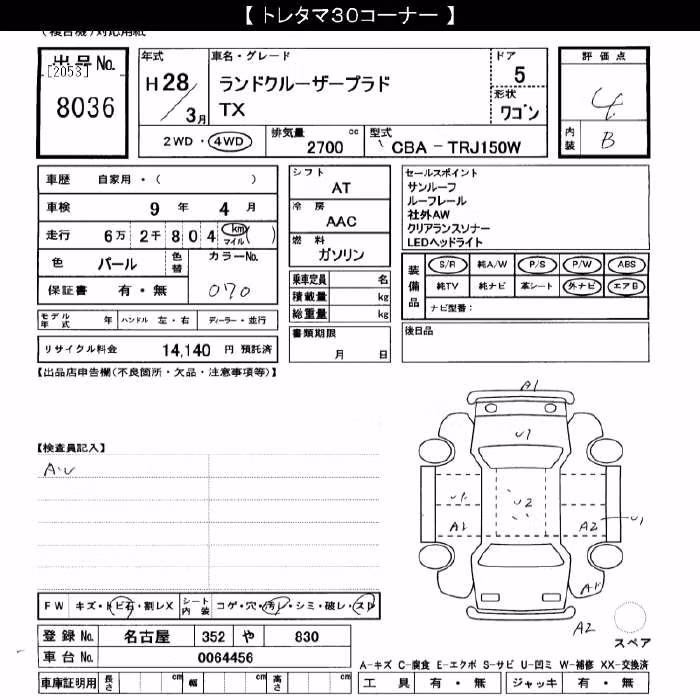 【 トレタマ30コーナー 】
(複合機)対応用紙
出品No.
[2053]
8036
年式
H28/3月
車名・グレード
ランドクルーザープラド
TX
ドア
5
形状
ワゴン
評価点
4
内装
B
2WD・4WD
排気量
2700 cc
型式
CBA - TRJ150W
車歴 自家用・( )
車検 9年 4月
走行 6万 2千 804 km マイル ( )
色 パール 色替 カラーNo.
保証書 有・無 070
モデル年式 年 ハンドル 左・右 ディーラー・並行
リサイクル料金 14,140 円 預託済
シフト
AT
冷房
AAC
燃料
ガソリン
乗車定員 名
積載量 kg
総重量 kg
書類期限
月 日
セールスポイント
サンルーフ
ルーフレール
社外AW
クリアランスソナー
LEDヘッドライト
装備品
S/R 純A/W P/S P/W ABS
純TV 純ナビ 革シート 外ナビ エアB
ナビ型番:
後日品
【出品店申告欄(不良箇所・欠品・注意事項等)】
【検査員記入】
A・U
A1
U1
U1
U2
A1
A2
U1
A1
A2
スペア
FW キズ・トビ石・割レX シート内装 コゲ・穴・汚レ・シミ・破レ・スレ
登録No. 名古屋 352 や 830
車台No. 0064456
車庫証明用 長さ cm 幅 cm 高さ cm
A-キズ C-腐食 E-エクボ S-サビ U-凹ミ W-補修 XX-交換済
工具 有・無 ジャッキ 有・無